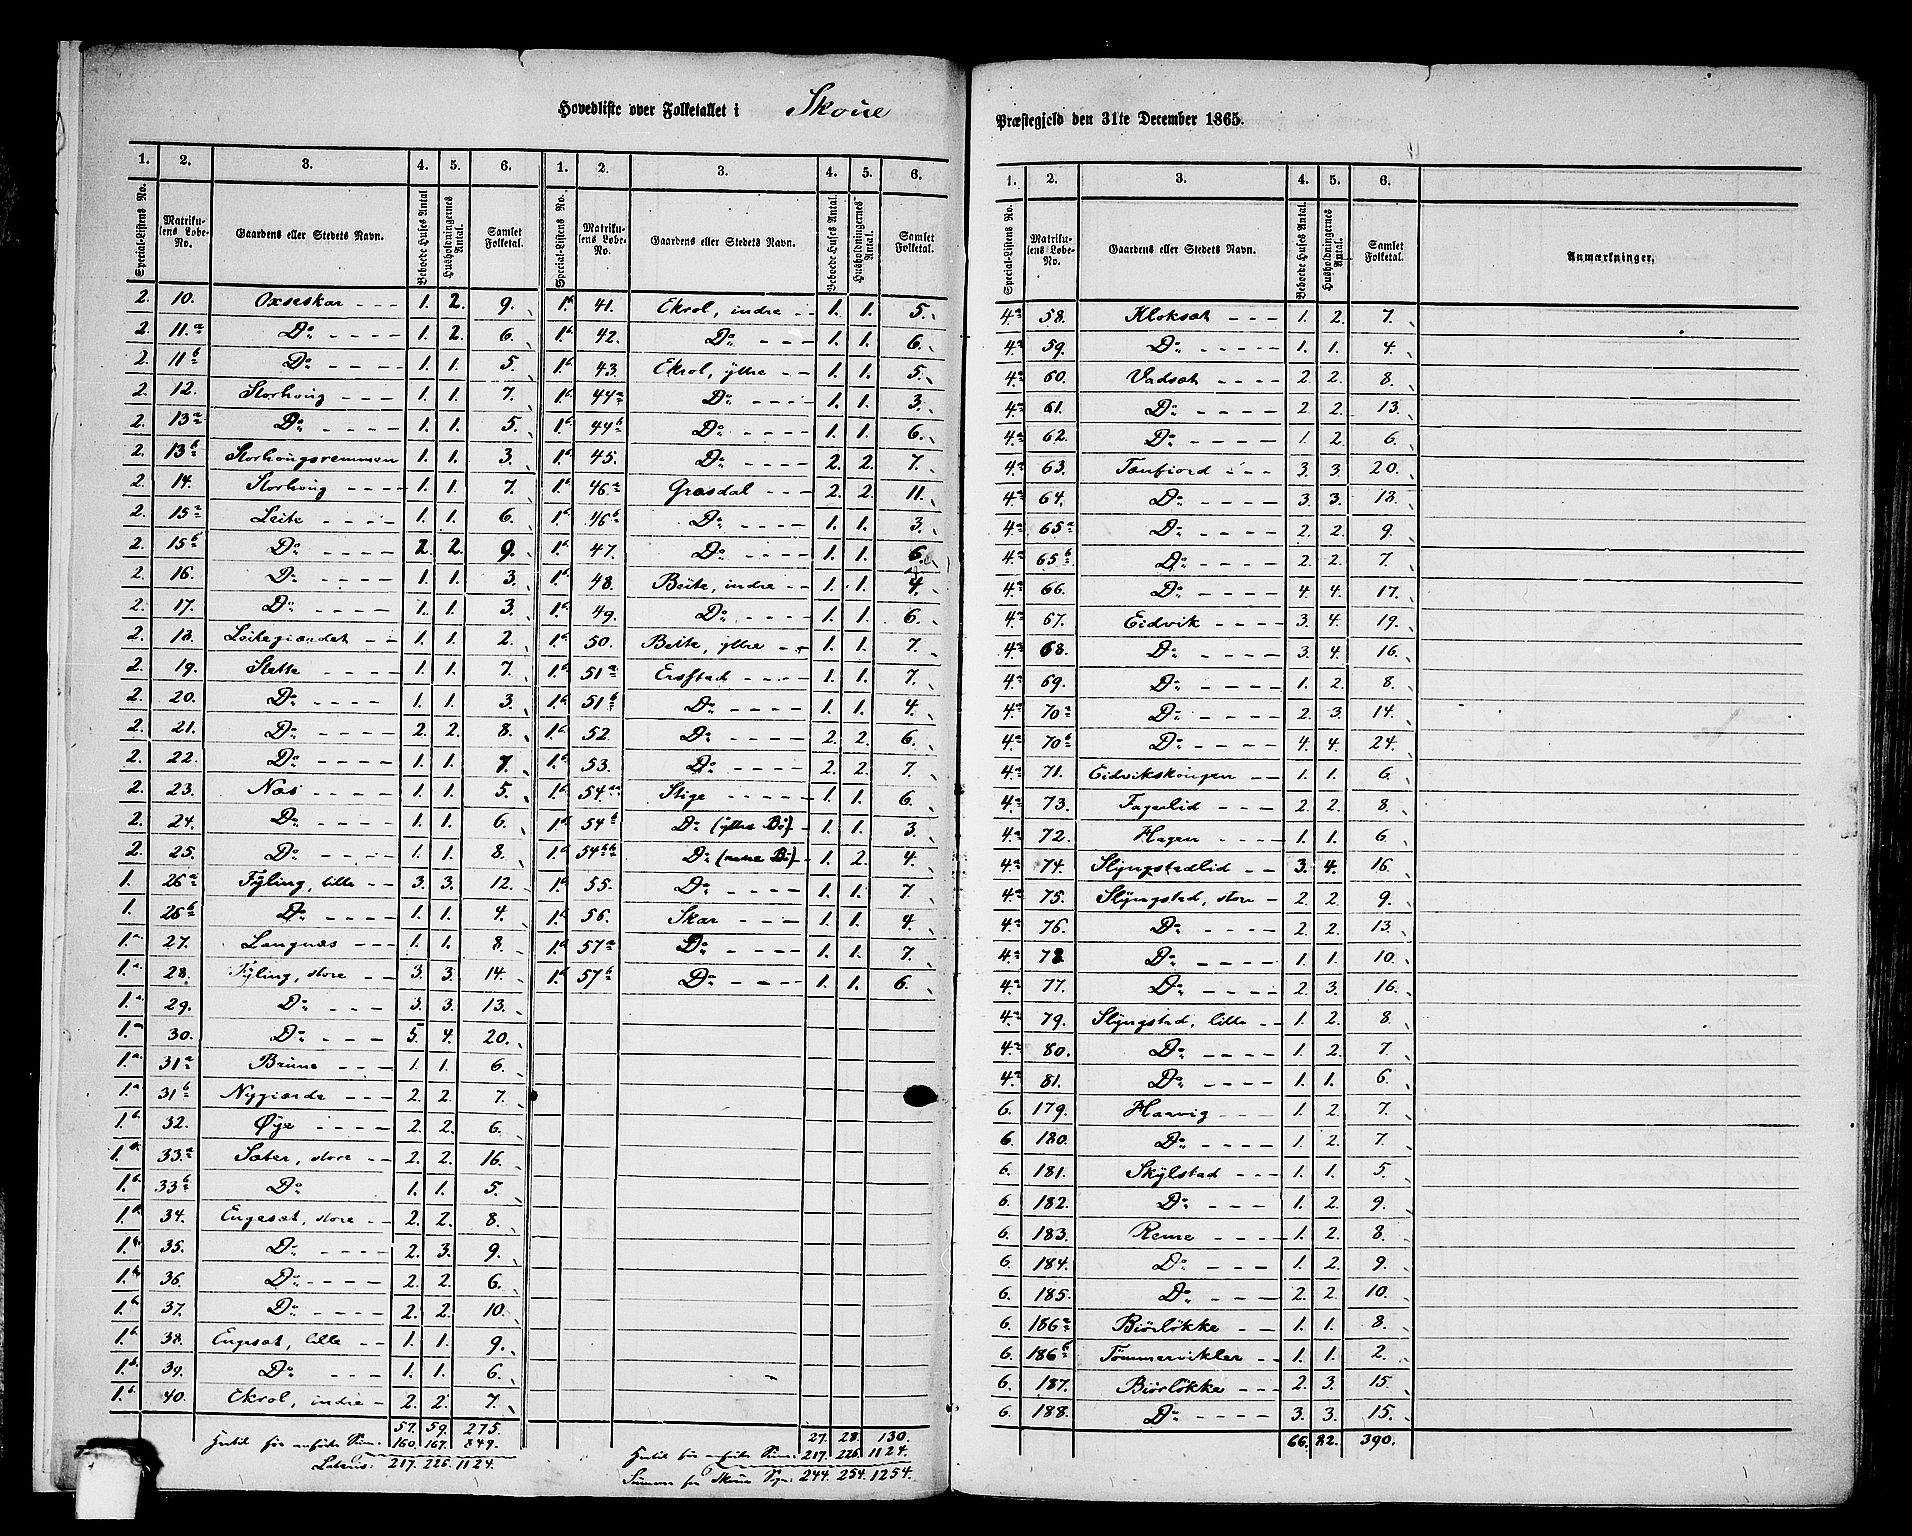 Hovedliste over Folketallet i Skoue
1. 2. 3. 4. 5. 6. 1. 2. 3. 4. 5. 6.
Special-Listens No. Matrikulens Løbe-No. Gaardens eller Stedets Navn. Beboede Huses Antal. Husholdningernes Antal. Samlet Folketal. Special-Listens No. Matrikulens Løbe-No. Gaardens eller Stedets Navn. Beboede Huses Antal. Husholdningernes Antal. Samlet Folketal.
2. 10. Oxseskar 1. 2. 9. 1.b 41. Ekrol, indre 1. 1. 5.
2. 11.a Do 1. 2. 6. 1.b 42. Do 1. 1. 6.
2. 11b Do 1. 1. 5. 1.b 43. Ekrol, ytre 1. 1. 5.
2. 12. Storhoug 1. 1. 7. 1.b 44a Do 1. 1. 3.
2. 13a Do 1. 1. 5. 1.b 44b Do 1. 1. 6.
2. 13b Storhougsremmen 1. 1. 3. 1.b 45. Do 2. 2. 7.
2. 14. Storhoug 1. 1. 7. 1.b 46a Grasdal 2. 2. 11.
2. 15a Leite 1. 1. 6. 1.b 46b Do 1. 1. 3.
2. 15b Do 2. 2. 9. 1.b 47. Do 1. 1. 6.
2. 16. Do 1. 1. 3. 1.b 48. Beite, indre 1. 1. 4.
2. 17. Do 1. 1. 3. 1.b 49. Do 1. 1. 6.
2. 18. Leitegiærdet 1. 1. 2. 1.b 50. Beite, yttre 1. 1. 7.
2. 19. Slette 1. 1. 7. 1.b 51a Ersftad 1. 1. 7.
2. 20. Do 1. 1. 3. 1.b 51b Do 1. 1. 4.
2. 21. Do 2. 2. 8. 1.b 52. Do 2. 2. 6.
2. 22. Do 1. 1. 7. 1.b 53. Do 2. 2. 7.
2. 23. Næs 1. 1. 5. 1.b 54aa Stige 1. 1. 6.
2. 24. Do 1. 1. 6. 1.b 54b Do (yttre Bö) 1. 1. 3.
2. 25. Do 1. 1. 8. 1.b 54bb Do 1. 2. 4.
1. 26a Fyling, lille 3. 3. 12. 1.b 55. Do 1. 1. 7.
1. 26b Do 1. 1. 4. 1.b 56. Skar 1. 1. 4.
1.a 27. Langnæs 1. 1. 8. 1.b 57a Do 1. 1. 7.
1.a 28. Fyling, store 3. 3. 14. 1.b 57b Do 1. 1. 6.
1.a 29. Do 3. 3. 13.
1.a 30. Do 5. 4. 20.
1.a 31a Brune 1. 1. 6.
1.a 31b Nygiærde 2. 2. 7.
1.b 32. Øye 2. 2. 6.
1.b 33.a Sæter, store 2. 2. 16.
1.b 33b Do 1. 1. 5.
1.b 34. Engesæt, store 2. 2. 8.
1.b 35. Do 2. 3. 9.
1.b 36. Do 2. 2. 6.
1.b 37. Do 2. 2. 10.
1.b 38. Engesæt, lille 1. 1. 9.
1.b 39. Do 1. 1. 6.
1.b 40. Ekrol, indre 2. 2. 7.
57. 59. 275. 27. 28. 130.
Hertil før anførte Sum: 160. 167. 849. Hertil før anførte Sum: 217. 226. 1124.
Lateris: 217. 226. 1124. Summa for Skoue Sogn: 244. 254. 1254.
Præstegjeld den 31te December 1865.
1. 2. 3. 4. 5. 6.
Special-Listens No. Matrikulens Løbe-No. Gaardens eller Stedets Navn. Beboede Huses Antal. Husholdningernes Antal. Samlet Folketal. Anmærkninger.
4.a 58. Kloksæt 1. 2. 7.
4.a 59. Do 1. 1. 4.
4.a 60. Vadsæt 2. 2. 8.
4.a 61. Do 2. 2. 13.
4.a 62. Do 1. 2. 6.
4.a 63. Tænfiord 3. 3. 20.
4.a 64. Do 3. 3. 18.
4.a 65a Do 2. 2. 9.
4.a 65b Do 2. 2. 7.
4.a 66. Do 4. 4. 17.
4.a 67. Eidvik 3. 4. 19.
4.a 68. Do 3. 4. 16.
4.a 69. Do 1. 2. 8.
4.a 70a Do 2. 3. 14.
4.a 70b Do 4. 4. 24.
4.a 71. Eidvikskougen 1. 1. 6.
4.a 73. Fagerlid 2. 2. 8.
4.a 72. Hagen 1. 1. 6.
4.a 74. Slyngstadlid 3. 4. 16.
4.a 75. Slyngstad, store 2. 2. 9.
4.a 76. Do 2. 2. 13.
4.a 78 Do 1. 1. 10.
4.a 77. Do 2. 3. 16.
4.a 79. Slyngstad, lille 1. 2. 8.
4.a 80. Do 1. 2. 7.
4.a 81. Do 1. 1. 6.
6. 179. Haavig 1. 2. 7.
6. 180. Do 1. 2. 7.
6. 181. Skylstad 1. 1. 5.
6. 182. Do 1. 2. 9.
6. 183. Reme 1. 2. 8.
6. 184. Do 1. 2. 9.
6. 185. Do 2. 2. 10.
6. 186a Biørløkke 1. 1. 8.
6. 186b Tømmervikler 1. 1. 2.
6. 187. Biørløkke 2. 3. 15.
6. 188. Do 3. 3. 15.
66. 82. 390.